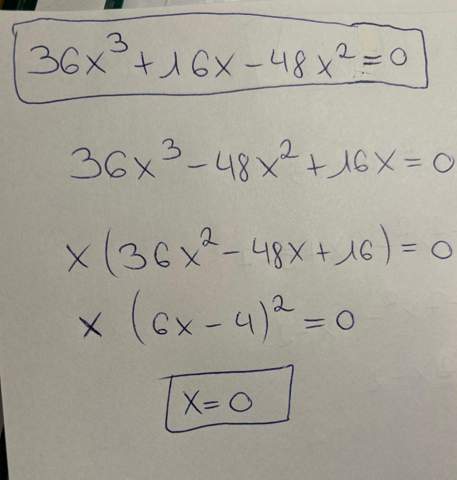 36x³+16x-48x²=0
36x³-48x²+16x=0
x(36x²-48x+16)=0
x (6x-4)²=0
x=0